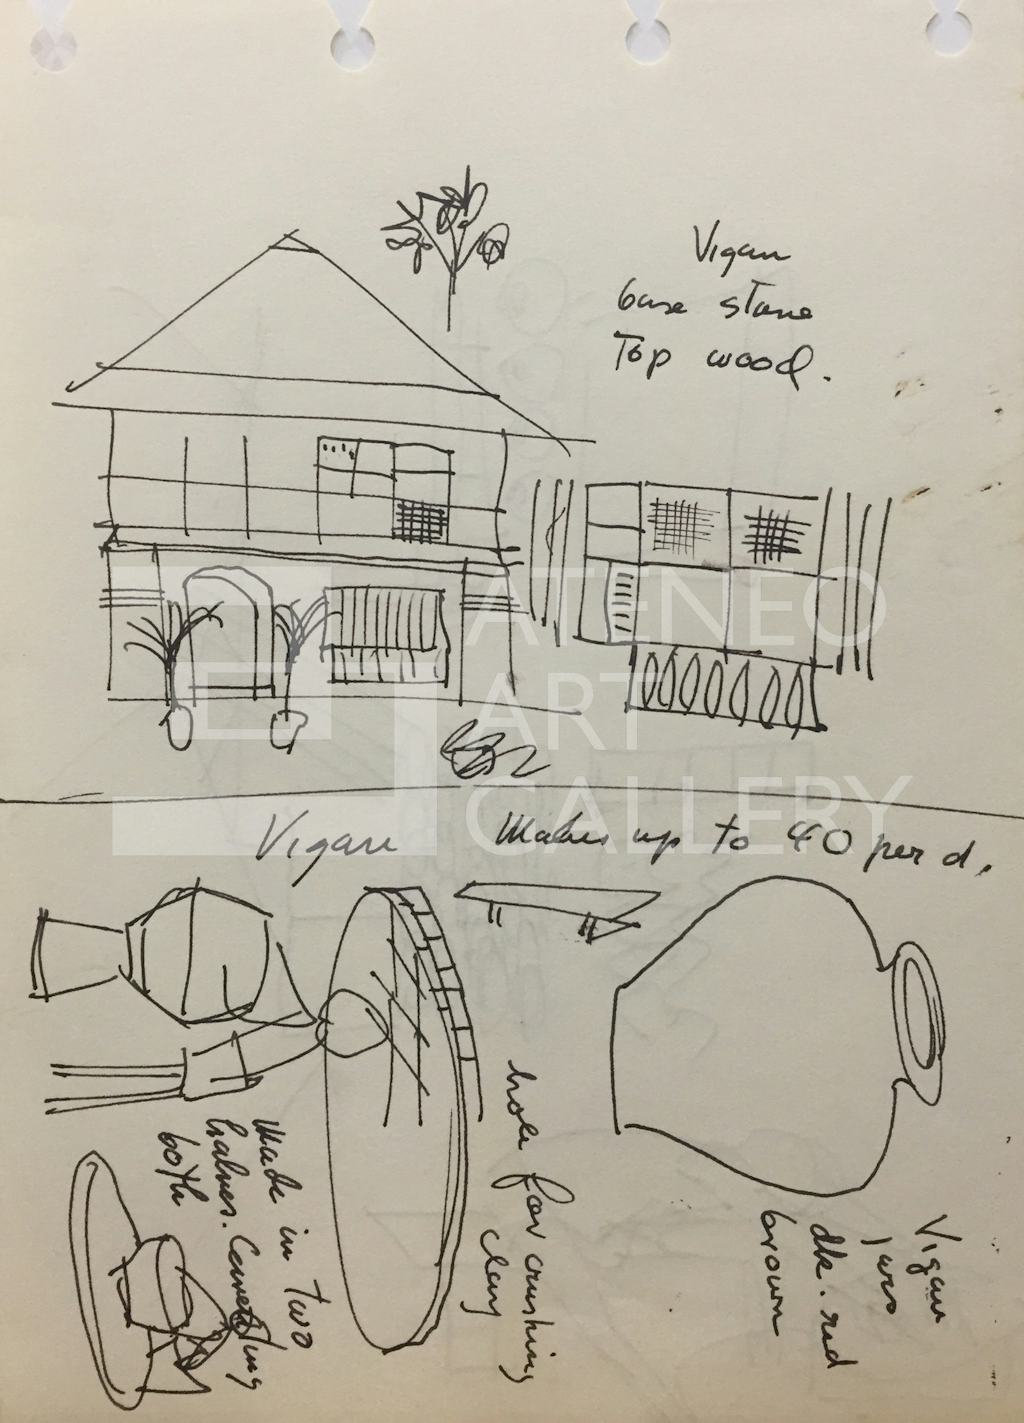 Vigan
base stone
Top wood.
ATENEO
ART
GALLERY
Vigan Makes up to 40 per d.
hole for crushing
clay
Made in two
halves. Connecting
both
Vigan
jars
dk. red
brown